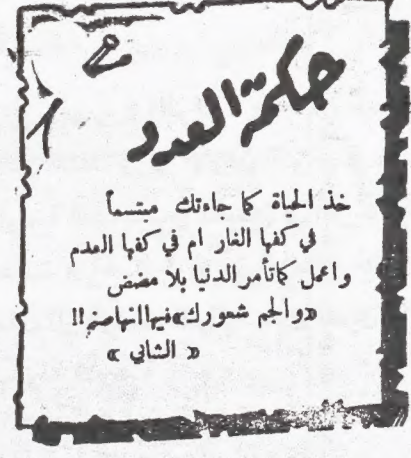 حكمة العدد
خذ الحياة كما جاءتك مبتسماً
في كفها الغار ام في كفها العدم
واعمل كما تأمر الدنيا بلا مضض
«والجم شعورك» فيها انها صنم!!
« الشابي »